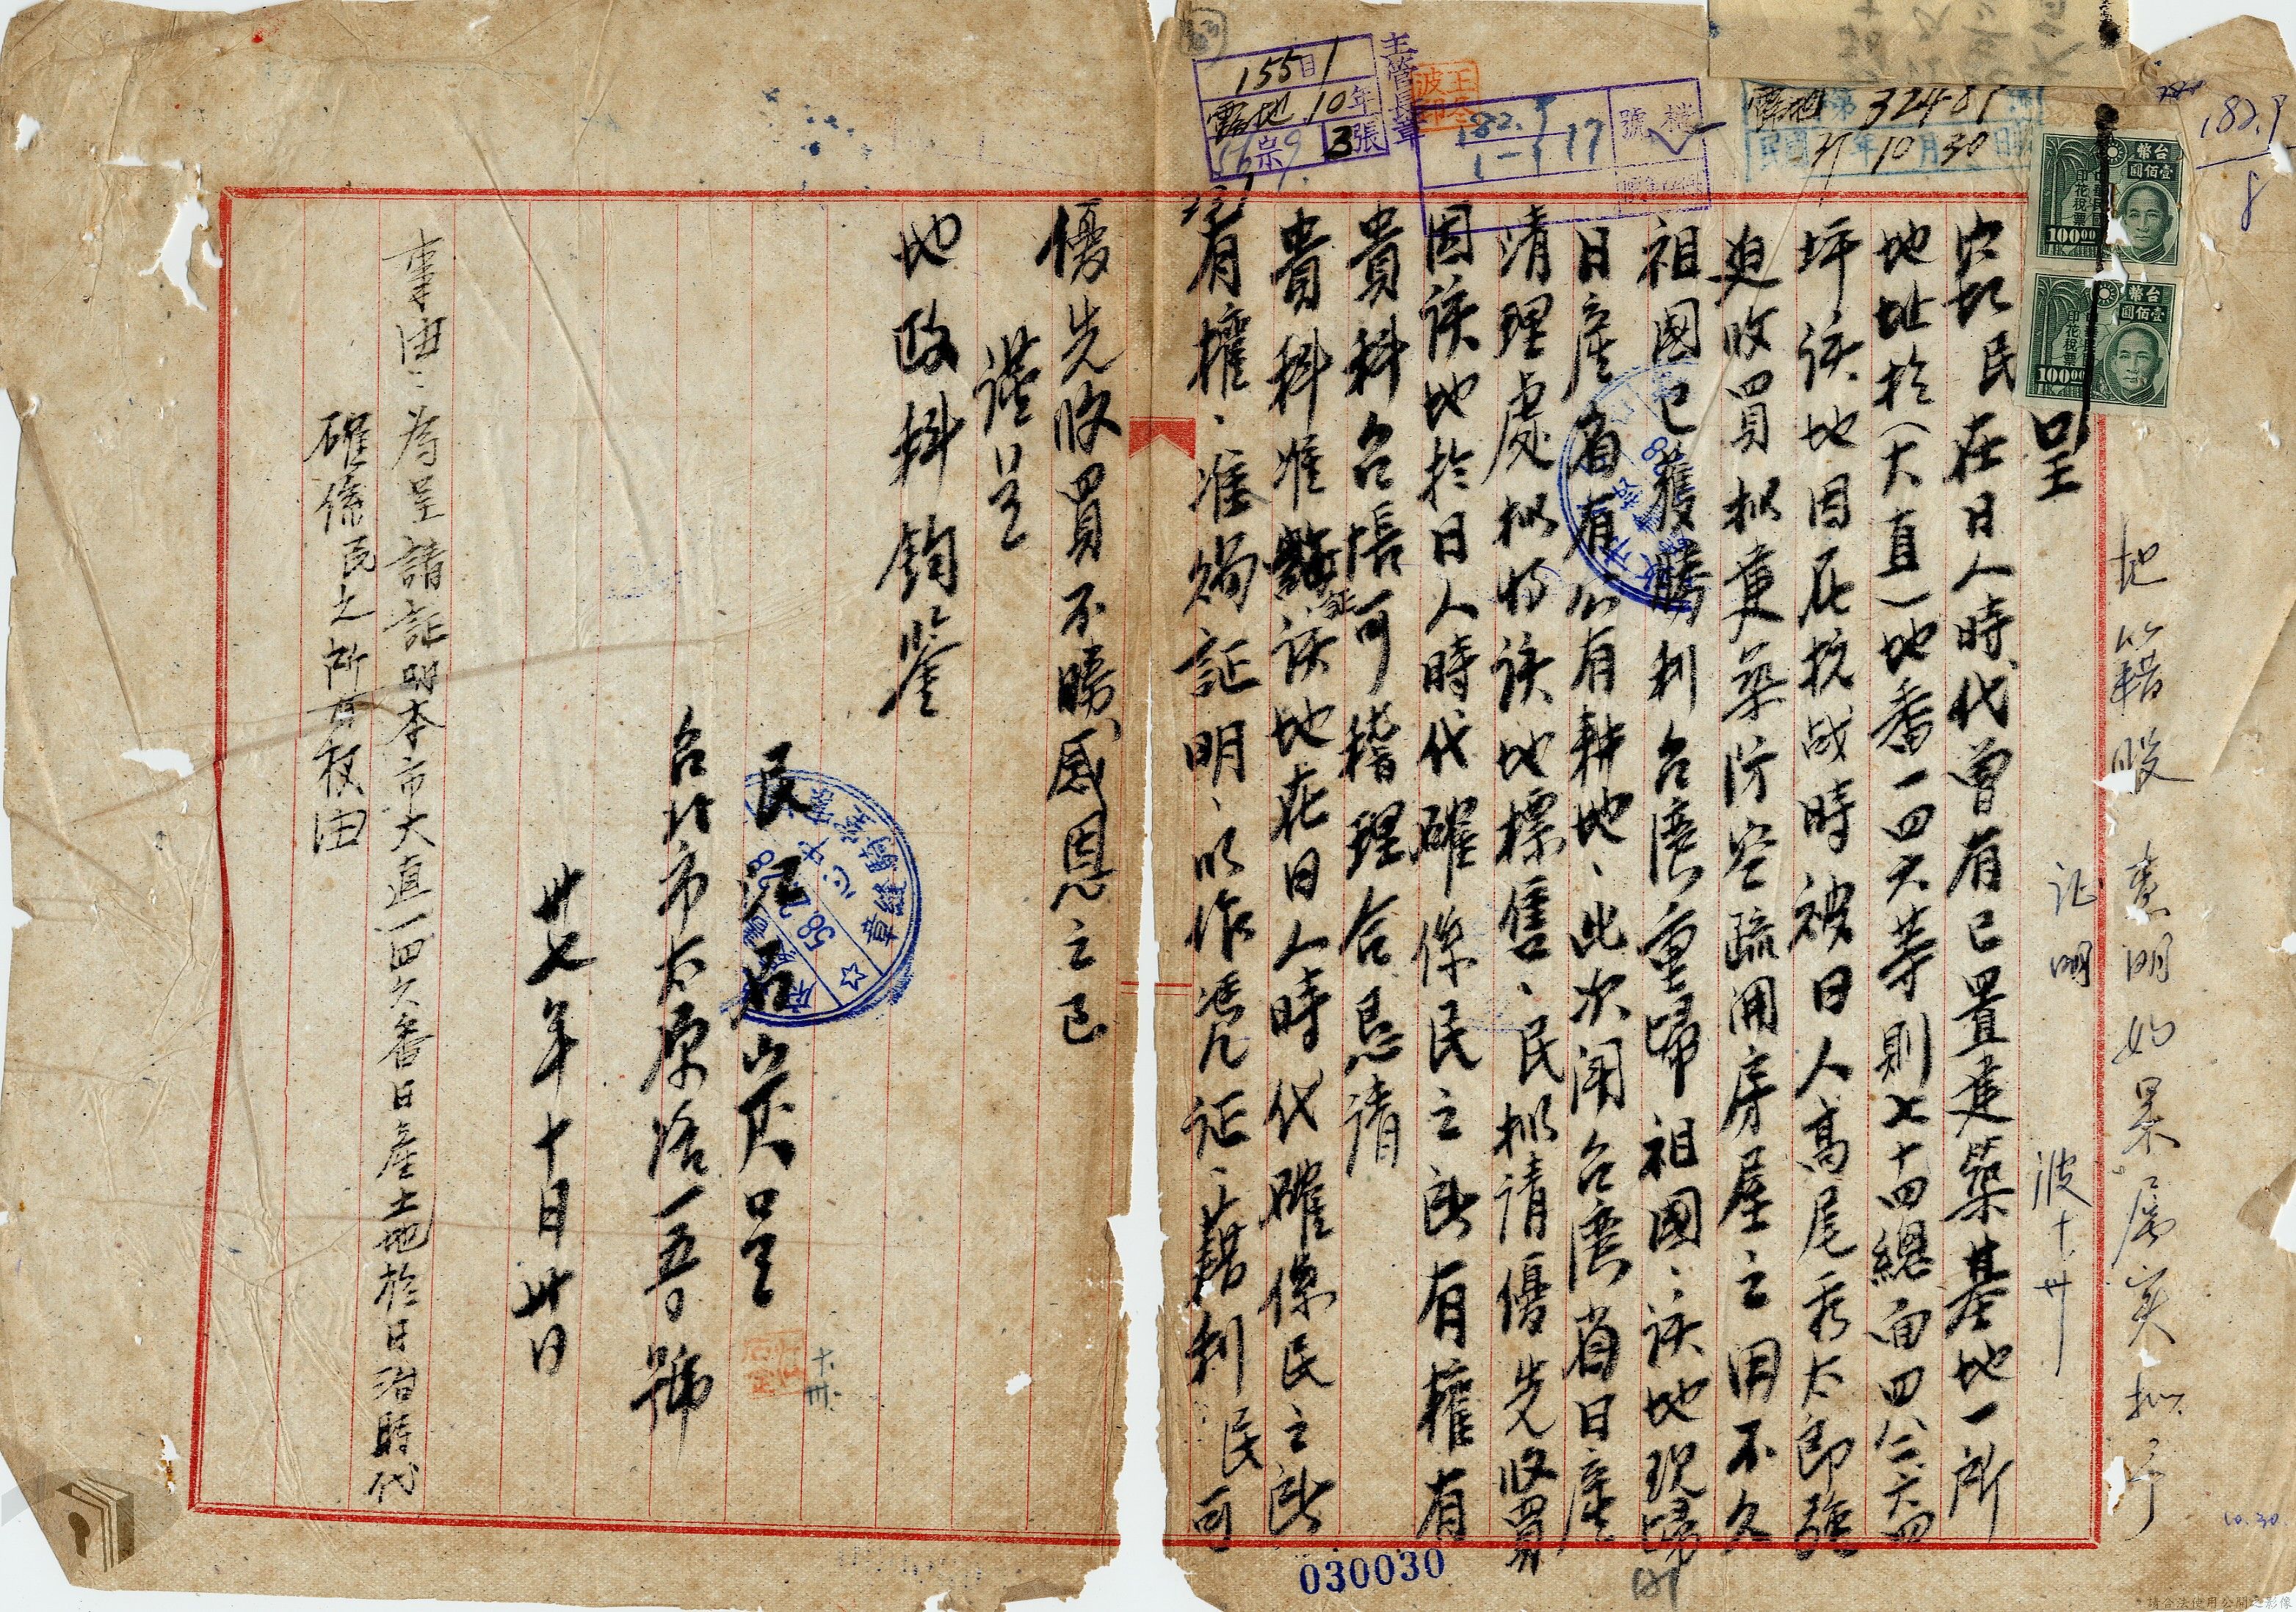 地籍股 查明如果屬实拟予
証明
波 十、卅
呈
民在日人時代曾有已置建築基地一所
地址於（大直）地番一四六等則七十四總面四公六四
坪該地因在抗战時被日人高尾秀太郎强
迫收買拟重築防空疏開房屋之用不久
祖國已獲勝利台湾重歸祖國、該地現歸
日產省有公有耕地、此次聞台湾省日產
清理處拟將該地標售、民拟請優先收買
因該地於日人時代確係民之所有權有
貴科台帳可稽理合恳請
貴科准証該地在日人時代確係民之所
有權、准賜証明、以作凴証、藉利民可
優先收買不勝感恩之至
謹呈
地政科鈞鑒
民江石 呈
台北市太原路一五號
卅七年十月卅日
事由：為呈請証明本市大直一四六番日產土地於日治時代
確係民之所有权由
155 目 1
露地 10 年
宗 9 3 張
主管員章
王 波 印
檔號
182.9
17
露地 第 32481 號
民國 37 年 10 月 30 日
182.9
8
台幣
壹佰圓
中華民國印花税票
100.00
台幣
壹佰圓
中華民國印花税票
100.00
58.2.8
章縫騎
十、卅、
030030
10.30.
請合法使用公開之影像